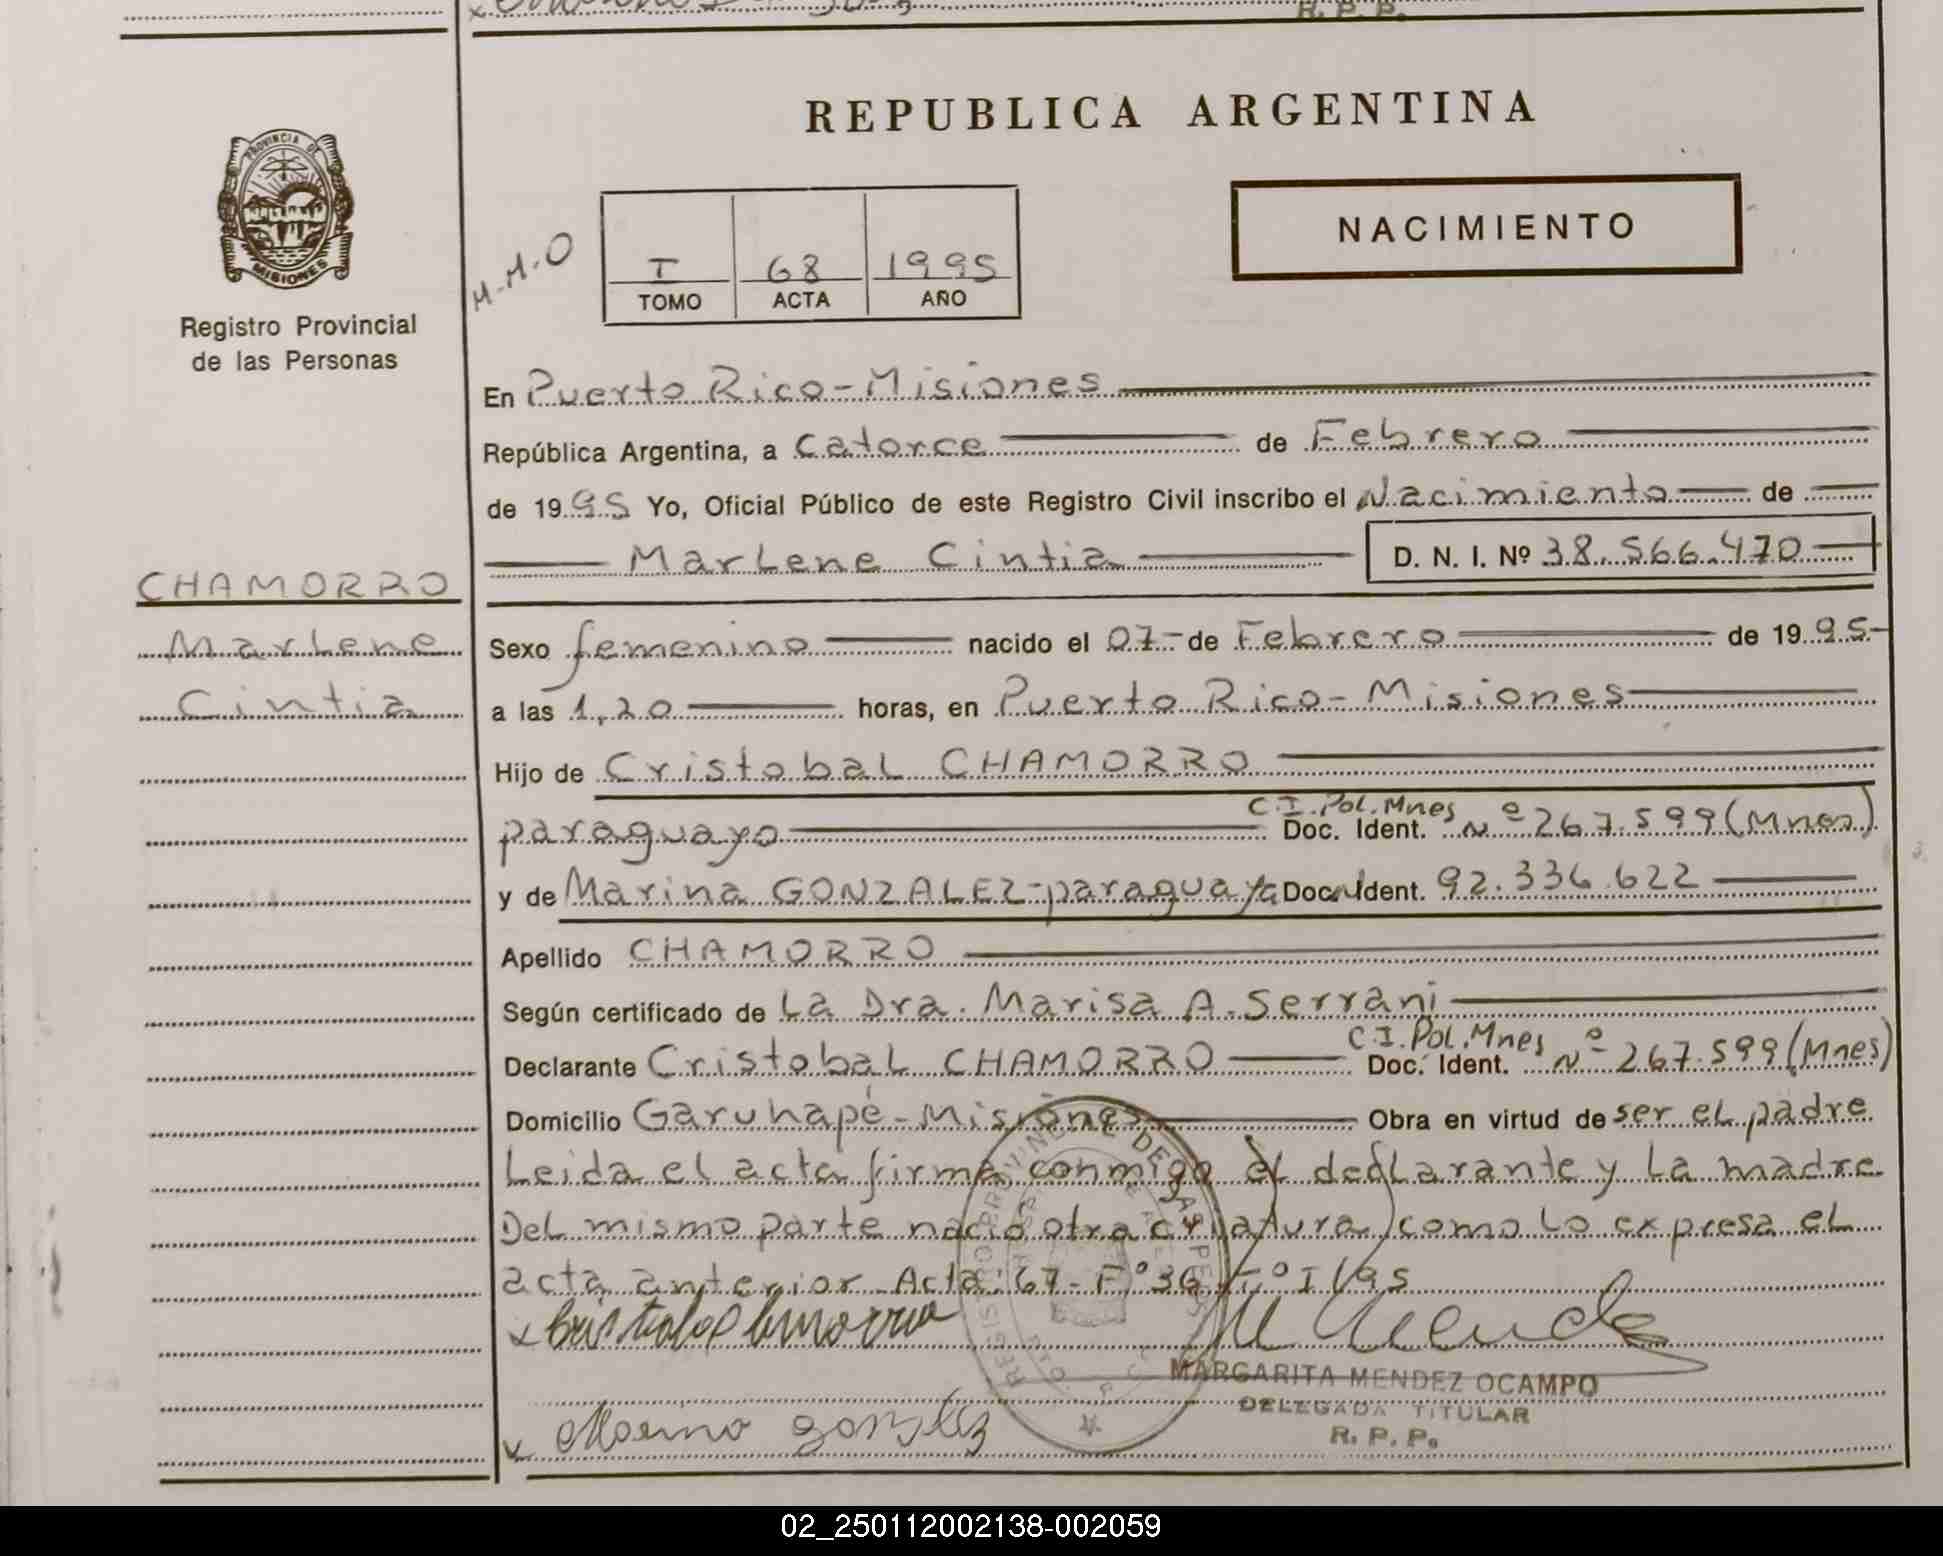 R. P. P.
REPUBLICA ARGENTINA
PROVINCIA DE
MISIONES
Registro Provincial
de las Personas
M.M.O
I 68 1995
TOMO ACTA AÑO
NACIMIENTO
En Puerto Rico-Misiones
República Argentina, a catorce de Febrero
de 1995 Yo, Oficial Público de este Registro Civil inscribo el Nacimiento de
Marlene Cintia D. N. I. Nº 38.566.470
CHAMORRO
Marlene
Cintia
Sexo femenino nacido el 07- de Febrero de 1995-
a las 1,20 horas, en Puerto Rico-Misiones
Hijo de Cristobal CHAMORRO
C.I.Pol.Mnes
paraguayo Doc. Ident. Nº 267.599(Mnes)
y de Marina GONZALEZ-paraguaya Doc. Ident. 92.336.622
Apellido CHAMORRO
Según certificado de La Dra. Marisa A. Serrani
C.I.Pol.Mnes
Declarante Cristobal CHAMORRO Doc. Ident. Nº 267.599(Mnes)
Domicilio Garuhapé-Misiones Obra en virtud de ser el padre
Leida el acta firma conmigo el declarante y La madre
Del mismo parte nació otra criatura como Lo expresa el
acta anterior Acta: 67- Fº 36 Tº I/95
x Cristobal Chamorro
MARGARITA MENDEZ OCAMPO
DELEGADA TITULAR
R. P. P.
Marina gonzalez
02_250112002138-002059